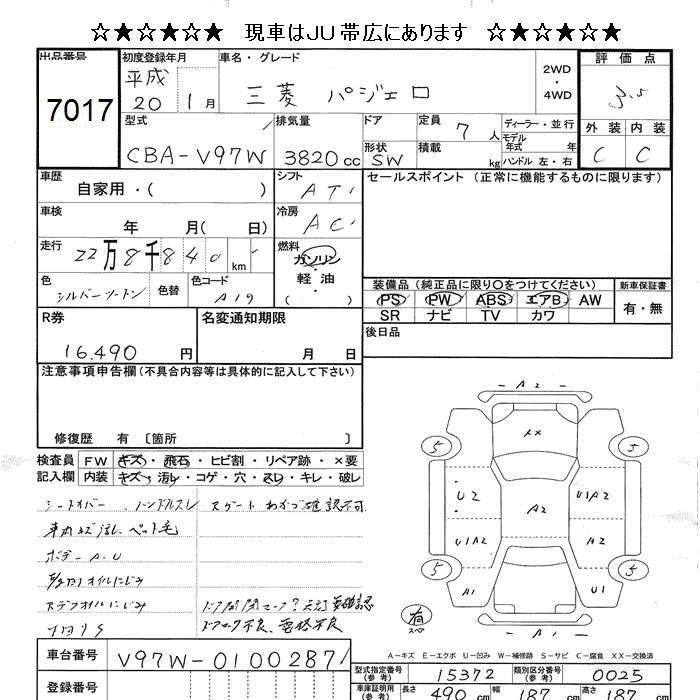 ☆★☆★☆★ 現車はJU帯広にあります ☆★☆★☆★
出品番号 7017
初度登録年月 平成 20 1月
車名・グレード 三菱 パジェロ
2WD・4WD
評価点 3.5
外装 内装
C C
型式 CBA-V97W
排気量 3820cc
ドア
形状 SW
定員 7人
積載 kg
ディーラー・並行
モデル年式 年
ハンドル 左・右
車歴 自家用・( )
シフト AT
セールスポイント (正常に機能するものに限ります)
車検 年 月( 日)
冷房 AC
走行 22万8千840km
燃料 ガソリン・軽油
( )
色 シルバーツートン
色替
色コード A19
装備品 (純正品に限り○をつけてください)
新車保証書
PS PW ABS エアB AW
SR ナビ TV カワ
有・無
R券 16,490円
名変通知期限 月 日
後日品
注意事項申告欄(不具合内容等は具体的に記入して下さい)
修復歴 有 〔箇所 〕
検査員記入欄
FW キズ・飛石・ヒビ割・リペア跡・×要
内装 キズ・汚れ・コゲ・穴・スレ・キレ・破レ
シートカバー、ハンドルスレ
車内キズ汚れ、ペット毛
ボデーA.U
オイルにじみ
ステアオイルにじみ
要確認
ドアロック不良
A2
XX
5 5
U2 A2 U1A2
U1A2 A2
5 5
A1 U1
A1
有
スペア
A-キズ E-エクボ U-凹み W-補修跡 S-サビ C-腐食 XX-交換済
車台番号 V97W-0100287
型式指定番号 15372
類別区分番号 0025
登録番号
車庫証明用(参考) 長さ 490cm 幅(参考) 187cm 高さ(参考) 187cm